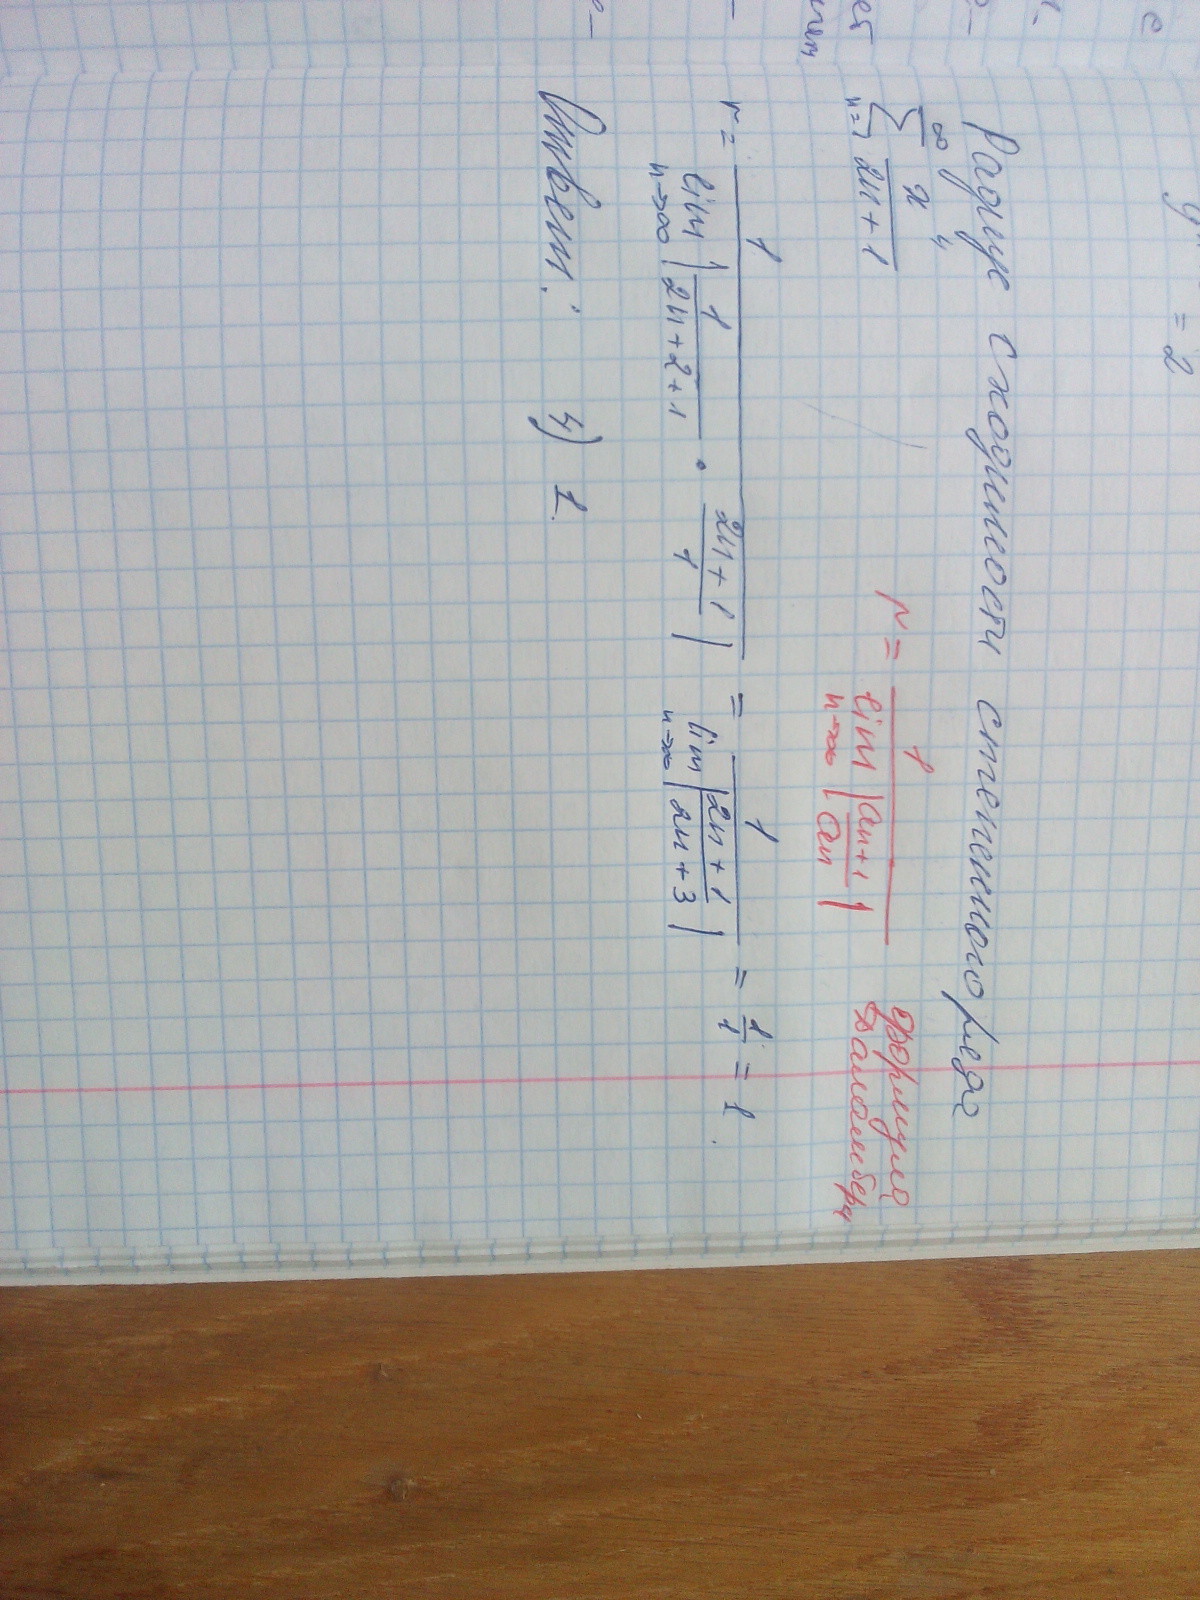 y'' = 2
Радиус сходимости степенного ряда
∞
∑ xⁿ / (2n + 1)
n=1
r = 1 / lim |aₙ₊₁ / aₙ|
n→∞
формула
Даламбера
r = 1 / lim |1 / (2n+2+1) · (2n+1) / 1| = 1 / lim |(2n+1) / (2n+3)| = 1/1 = 1.
n→∞ n→∞
Ответ: 4) 1.